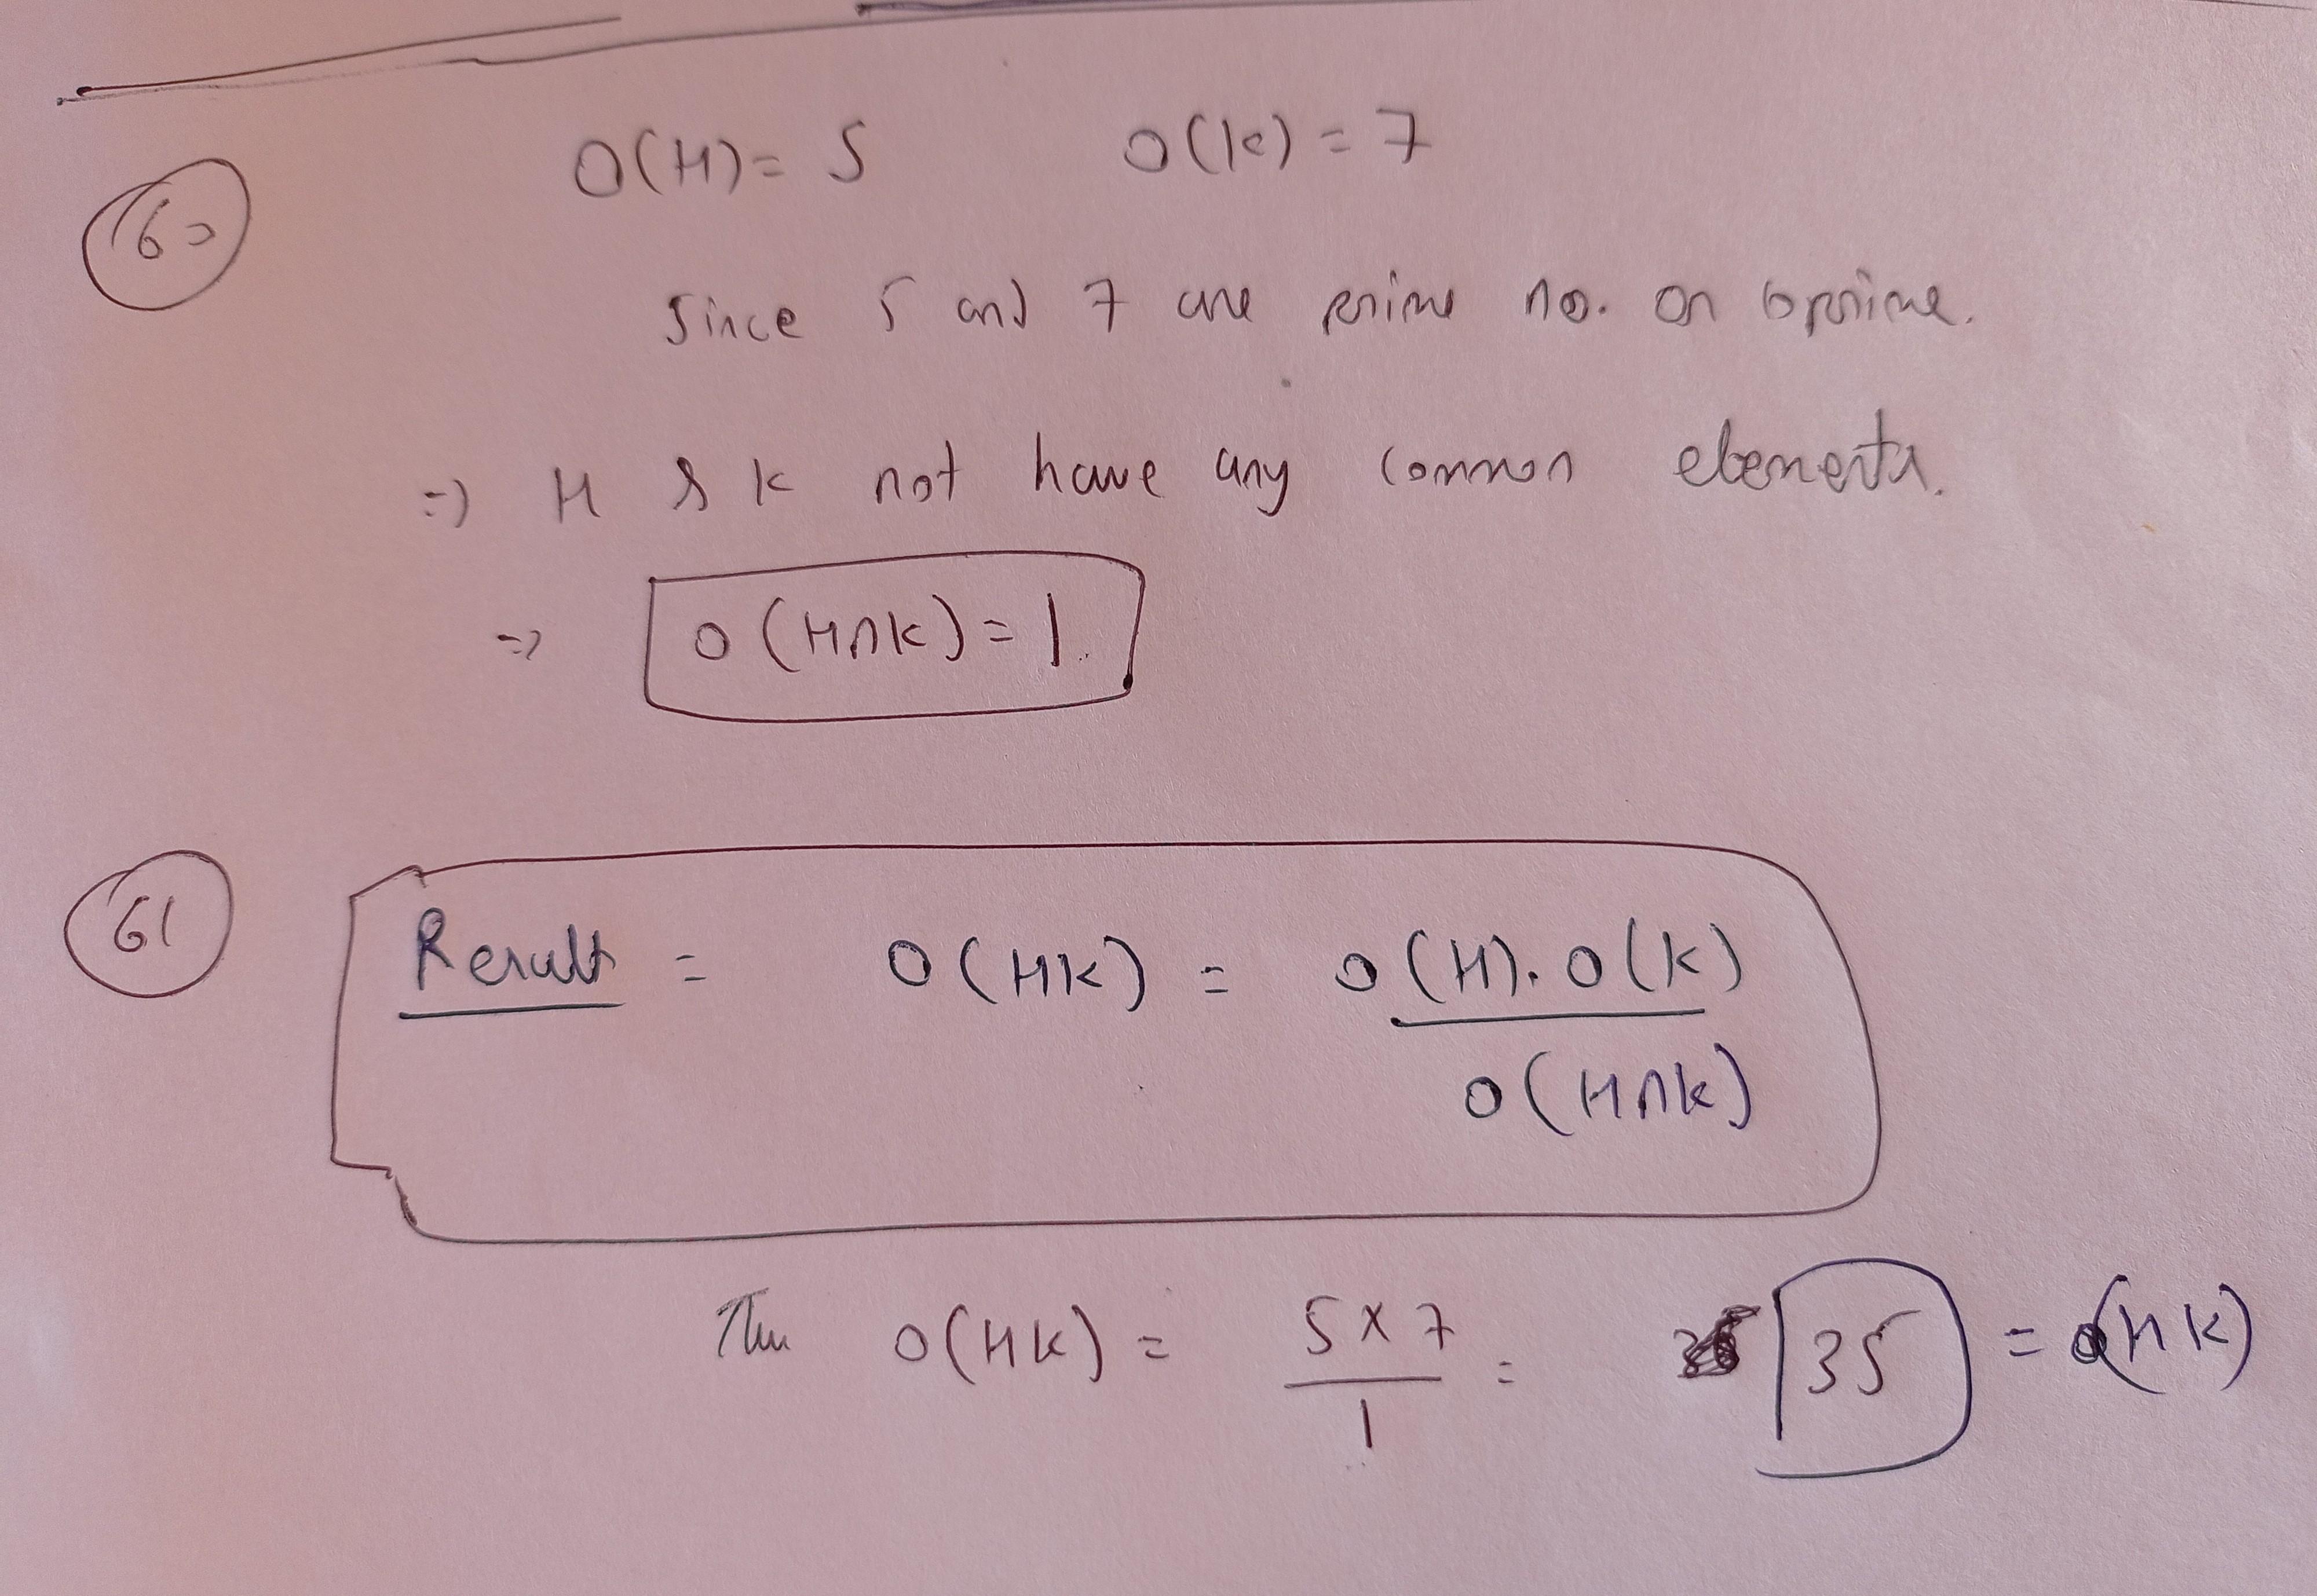 60
O(H) = 5 O(K) = 7
Since 5 and 7 are prime no. or coprime.
=> H & K not have any common elements.
=> O(H∩K) = 1.
61
Result = O(HK) = O(H).O(K)
O(H∩K)
Then O(HK) = 5×7 = 35 = O(HK)
1